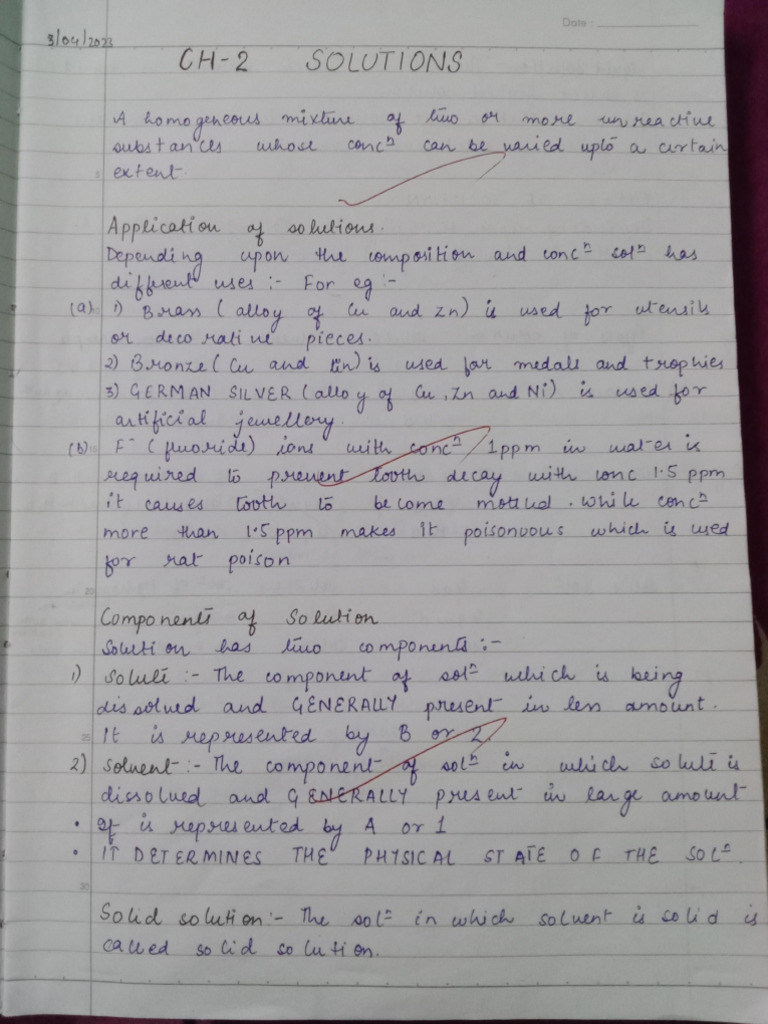 Date :
3/04/2023
CH-2 SOLUTIONS
A homogeneous mixture of two or more unreactive
substances whose concⁿ can be varied upto a certain
extent.
Application of solutions.
Depending upon the composition and concⁿ solⁿ has
different uses :- For eg :-
(a) 1) Brass (alloy of Cu and Zn) is used for utensils
or decorative pieces.
2) Bronze (Cu and tin) is used for medals and trophies
3) GERMAN SILVER (alloy of Cu, Zn and Ni) is used for
artificial jewellery.
(b) F⁻ (fluoride) ions with concⁿ 1ppm in water is
required to prevent tooth decay with conc 1.5 ppm
it causes tooth to become . While concⁿ
more than 1.5ppm makes it poisonuous which is used
for rat poison
20
Components of Solution
Solution has two components :-
1) Solute :- The component of solⁿ which is being
dissolved and GENERALLY present in less amount.
25 It is represented by B or 2.
2) Solvent :- The component of solⁿ in which solute is
dissolved and GENERALLY present in large amount
• It is represented by A or 1
• IT DETERMINES THE PHYSICAL STATE OF THE SOLⁿ.
30
Solid solution :- The solⁿ in which solvent is solid is
called solid solution.